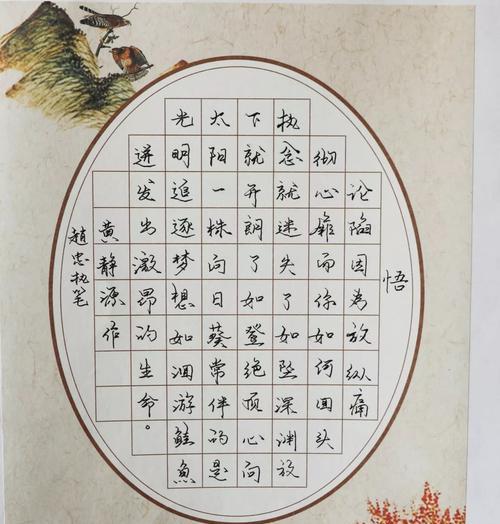 悟
论陷因為放纵痛
彻心扉而你如何回头
执念就迷失了如坠深渊放
下就开朗了如登绝顶心向
太阳一株向日葵常伴的是
光明追逐梦想如洄游鲑魚
迸发出激昂的生命。
黄静源作
趙忠执笔